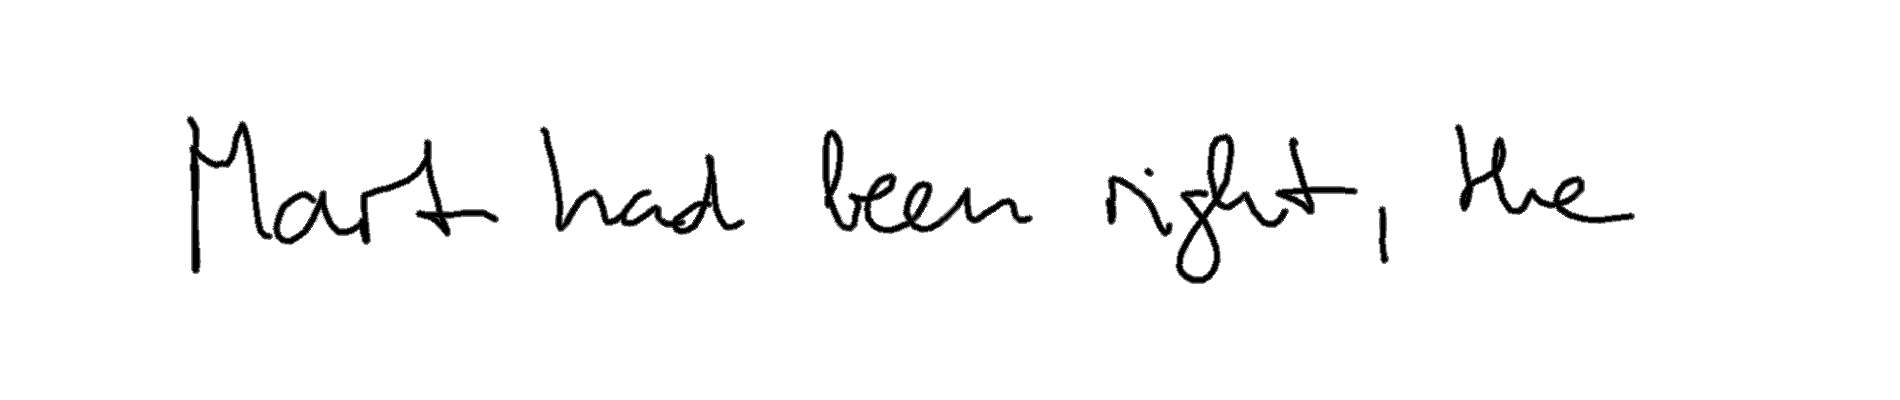 Mart had been right, the